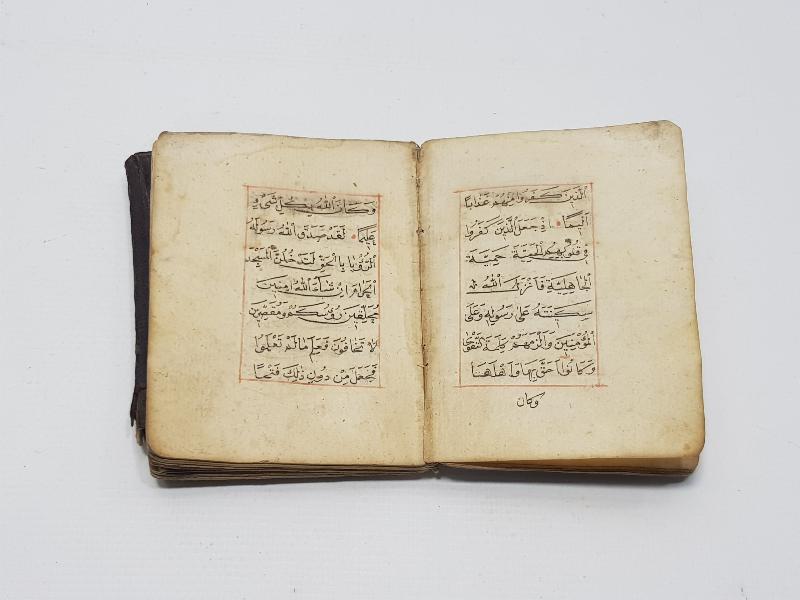 الَّذينَ كَفَرُوا مِنْهُمْ عَذَابًا
اَليمًا اِذْ جَعَلَ الَّذينَ كَفَرُوا
في قُلُوبِهِمُ الْحَمِيَّةَ حَمِيَّةَ
الْجَاهِلِيَّةِ فَاَنْزَلَ اللهُ
سَكينَتَهُ عَلى رَسُولِه وَعَلَى
الْمُؤْمِنينَ وَاَلْزَمَهُمْ كَلِمَةَ التَّقْوى
وَكَانُوا اَحَقَّ بِهَا وَاَهْلَهَا
وكان
وَكَانَ اللهُ بِكُلِّ شَيْءٍ
عَليمًا لَقَدْ صَدَقَ اللهُ رَسُولَهُ
الرُّؤْيَا بِالْحَقِّ لَتَدْخُلُنَّ الْمَسْجِدَ
الْحَرَامَ اِنْ شَاءَ اللهُ امِنينَ
مُحَلِّقينَ رُؤُسَكُمْ وَمُقَصِّرينَ
لَا تَخَافُونَ فَعَلِمَ مَا لَمْ تَعْلَمُوا
فَجَعَلَ مِنْ دُونِ ذلِكَ فَتْحًا